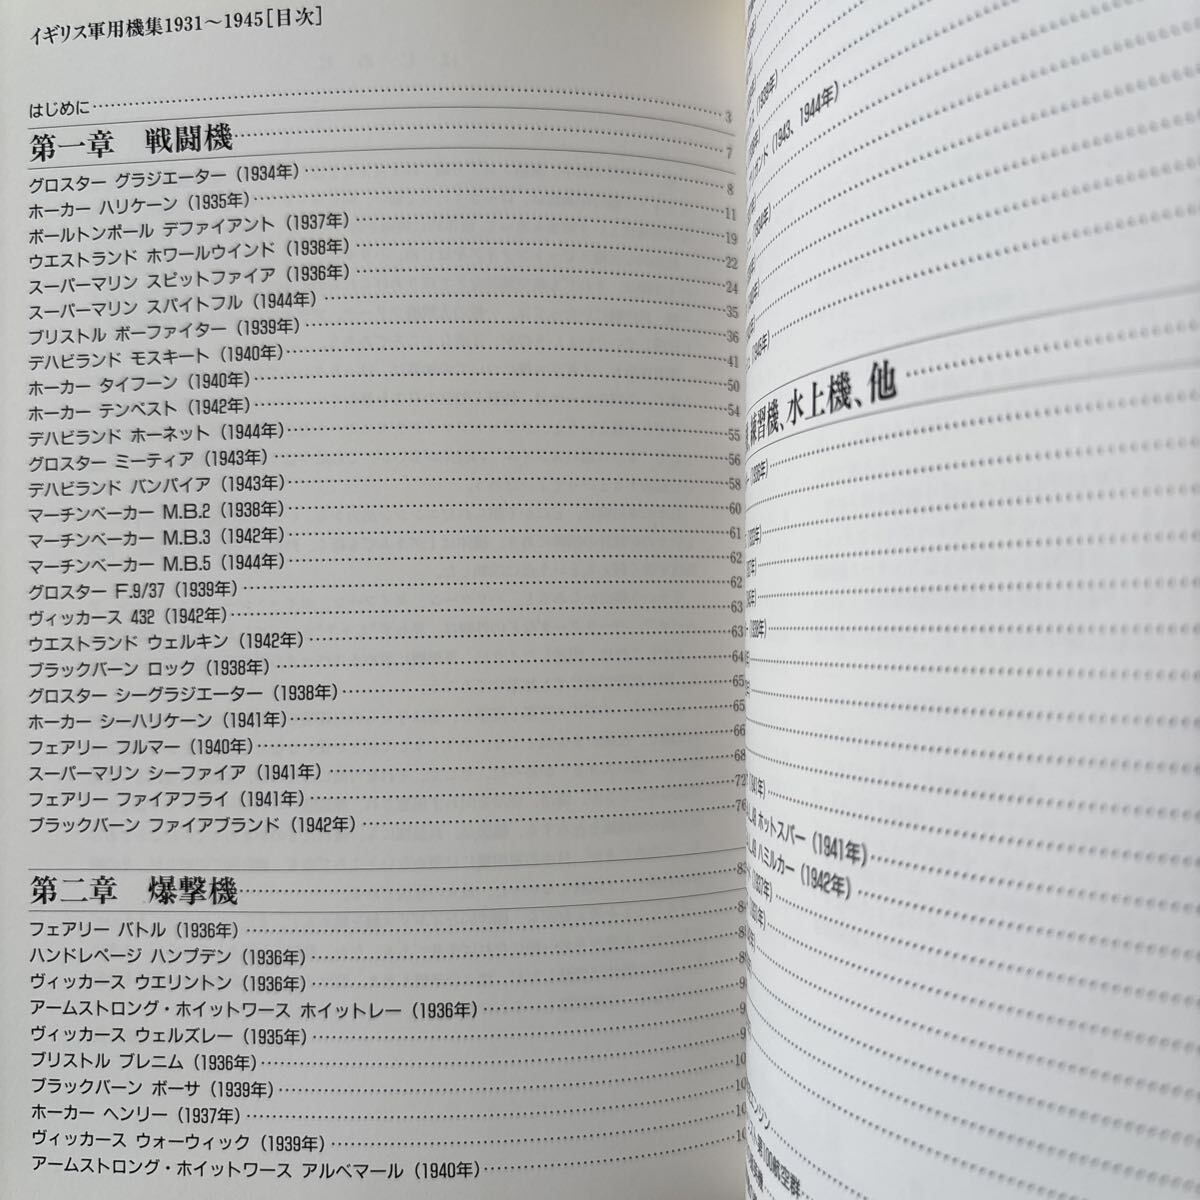 イギリス軍用機集1931〜1945[目次]
はじめに 3
第一章 戦闘機 7
グロスター グラジエーター（1934年） 8
ホーカー ハリケーン（1935年） 11
ボールトンポール デファイアント（1937年） 19
ウエストランド ホワールウインド（1938年） 22
スーパーマリン スピットファイア（1936年） 24
スーパーマリン スパイトフル（1944年） 35
ブリストル ボーファイター（1939年） 36
デハビランド モスキート（1940年） 41
ホーカー タイフーン（1940年） 50
ホーカー テンペスト（1942年） 54
デハビランド ホーネット（1944年） 55
グロスター ミーティア（1943年） 56
デハビランド バンパイア（1943年） 58
マーチンベーカー M.B.2（1938年） 60
マーチンベーカー M.B.3（1942年） 61
マーチンベーカー M.B.5（1944年） 62
グロスター F.9/37（1939年） 62
ヴィッカース 432（1942年） 63
ウエストランド ウェルキン（1942年） 63
ブラックバーン ロック（1938年） 64
グロスター シーグラジエーター（1938年） 65
ホーカー シーハリケーン（1941年） 65
フェアリー フルマー（1940年） 66
スーパーマリン シーファイア（1941年） 68
フェアリー ファイアフライ（1941年） 72
ブラックバーン ファイアブランド（1942年） 76
第二章 爆撃機
フェアリー バトル（1936年）
ハンドレページ ハンプデン（1936年）
ヴィッカース ウエリントン（1936年）
アームストロング・ホイットワース ホイットレー（1936年）
ヴィッカース ウェルズレー（1935年）
ブリストル ブレニム（1936年）
ブラックバーン ボーサ（1939年）
ホーカー ヘンリー（1937年）
ヴィッカース ウォーウィック（1939年）
アームストロング・ホイットワース アルベマール（1940年）
（1943、1944年）
練習機、水上機、他
ホットスパー（1941年）
ハミルカー（1942年）
エンジン
第100航空群